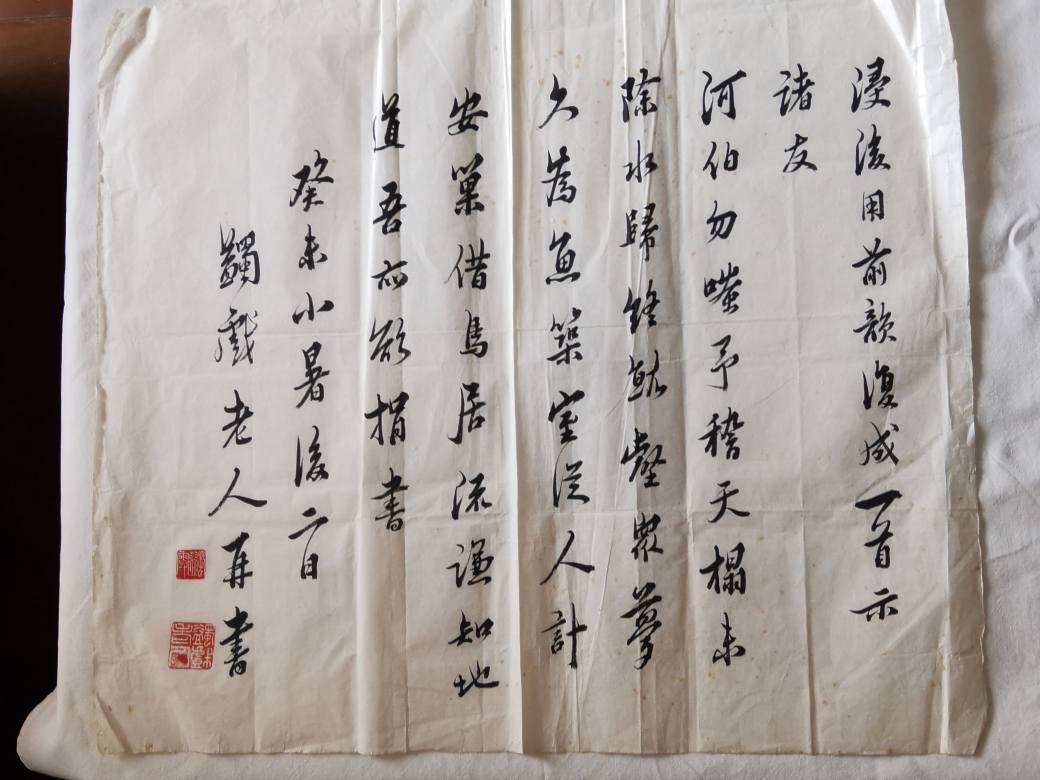 浸後用前韻復成一首示
諸友
河伯勿嗤予稽天榻未
除水歸終就壑眾夢
久為魚築室從人計
安巢借鳥居流謙知地
道吾亦欲捐書
癸未小暑後二日
蠲戲老人再書